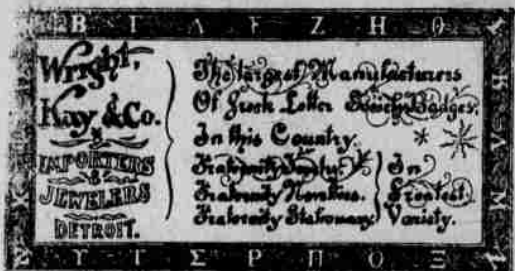 Β Γ Δ Ε Ζ Η Θ
Wright,
Kay & Co.
IMPORTERS
&
JEWELERS
DETROIT.
The Largest Manufacturers
Of Greek Letter Society Badges,
In this Country.
Fraternity Jewelry.
Fraternity Novelties.
Fraternity Stationary.
In
Greatest
Variety.
Κ Λ Μ
Υ Τ Σ Ρ Π Ο Ξ
Χ